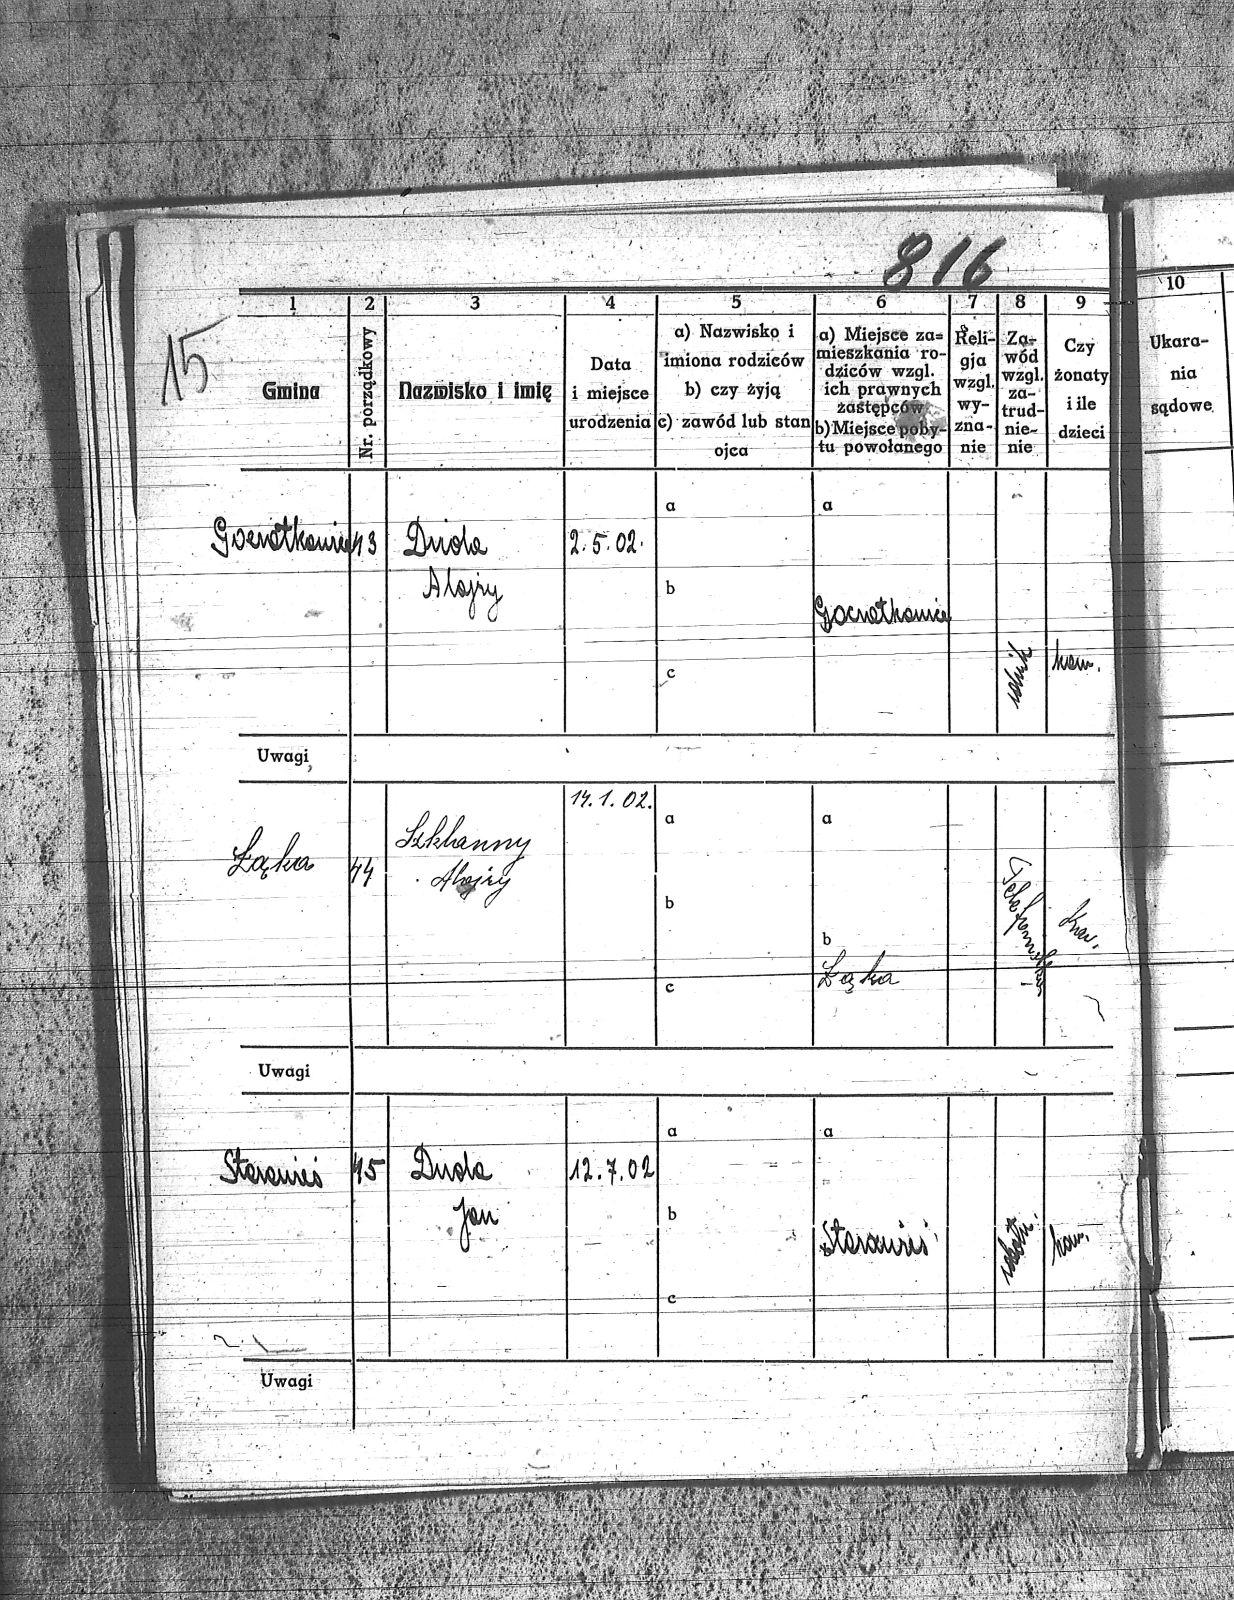 816
15.
1
2
3
4
5
6
7
8
9
10
Gmina
Nr. porządkowy
Nazwisko i imię
Data
i miejsce
urodzenia
a) Nazwisko i
imiona rodziców
b) czy żyją
c) zawód lub stan
ojca
a) Miejsce za=
mieszkania ro-
dziców wzgl.
ich prawnych
zastępców
b) Miejsce poby-
tu powołanego
Reli-
gja
wzgl.
wy-
zna-
nie
Za-
wód
wzgl.
za-
trud-
nie-
nie
Czy
żonaty
i ile
dzieci
Ukara-
nia
sądowe
a
a
Goczałkowice
43
Duda
2.5.02.
Alojzy
b
Goczałkowice
kaw.
c
Uwagi
14.1.02.
a
a
Szklanny
Łąka
44
Alojzy
b
kaw.
b
Łąka
c
Uwagi
a
a
Starawieś
45
Duda
12.7.02
Jan
b
Starawieś
kaw.
c
Uwagi